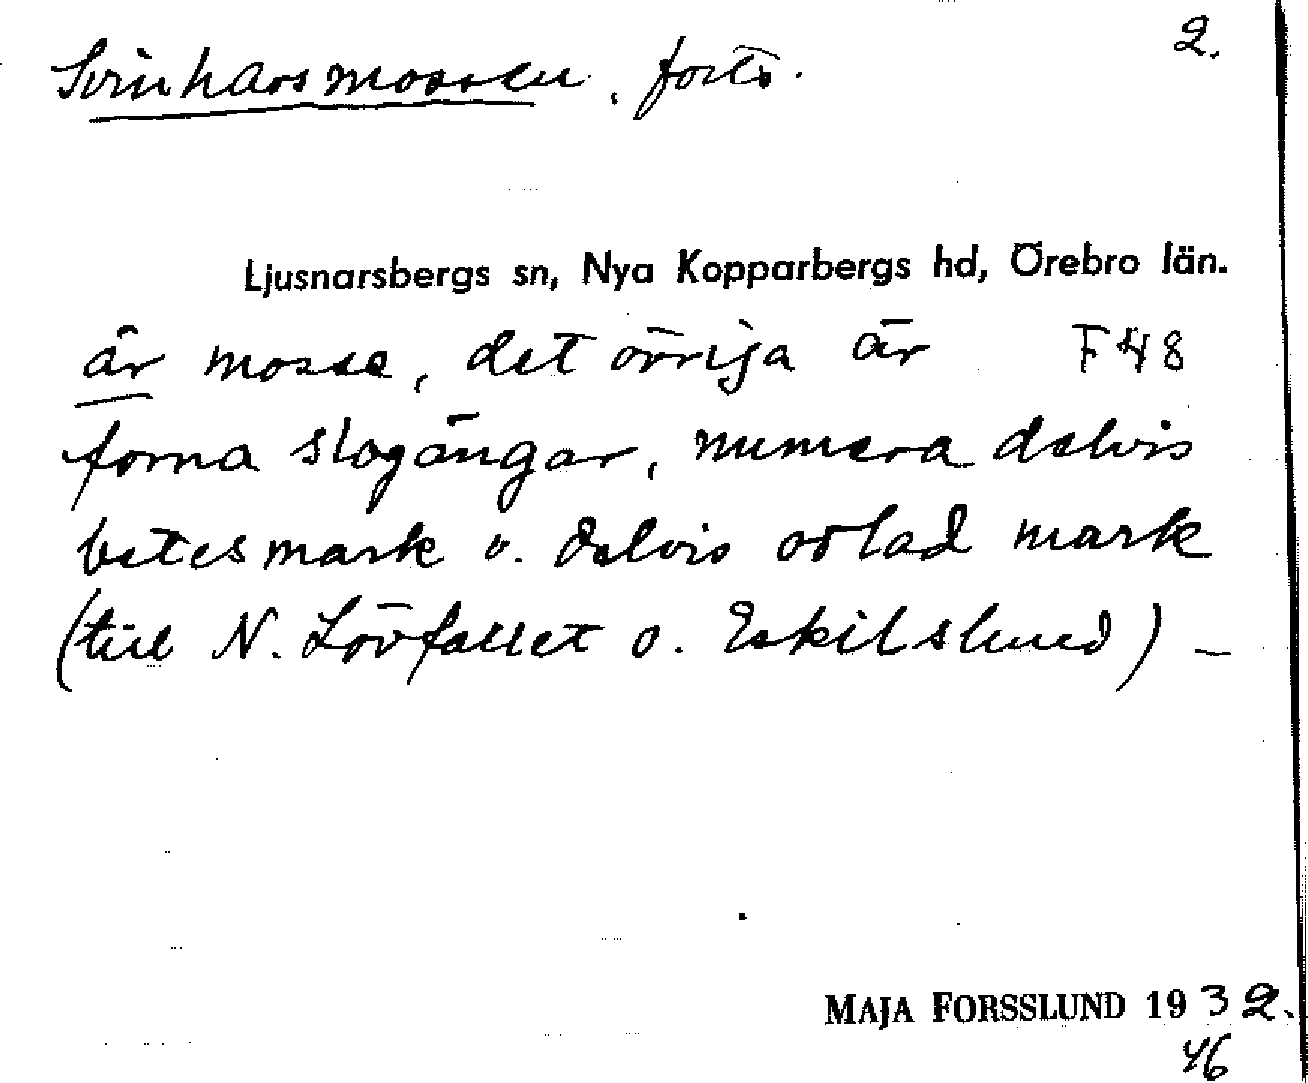 2.
Svinharsmossen, forts.
Ljusnarsbergs sn, Nya Kopparbergs hd, Örebro län.
är mosse, det övriga är F48
forna slogängar, numera delvis
betesmark o. delvis odlad mark
(till N. Lövfallet o. Eskilslund) –
MAJA FORSSLUND 1932.
46